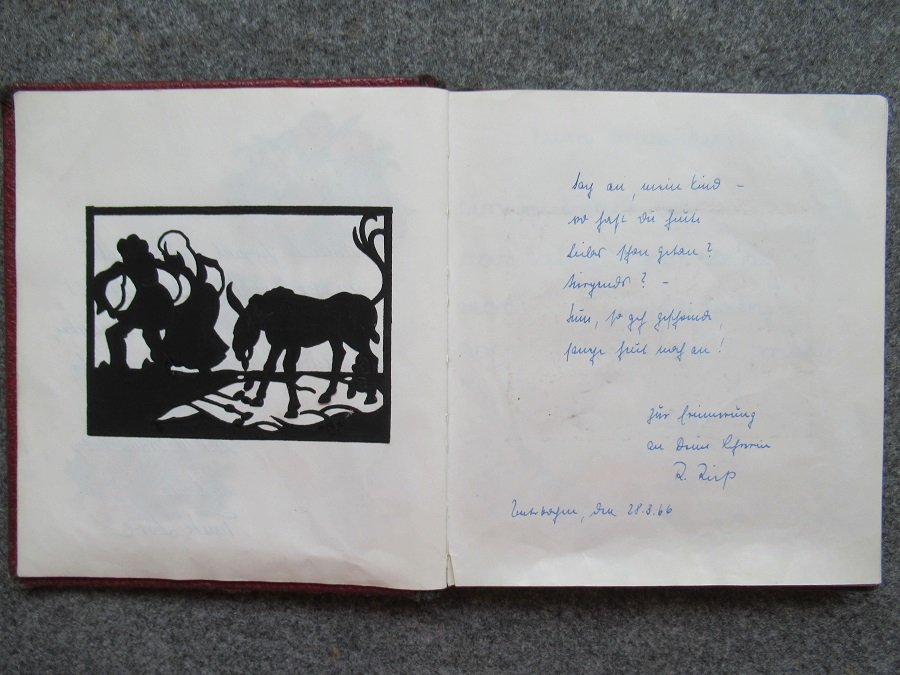 Sag an, mein Kind –
wo hast Du heute
Liebes schon getan?
Nirgends? –
Nun, so geh geschwind,
fange heut noch an!
Zur Erinnerung
an Deine Lehrerin
R.
den 28.3.66